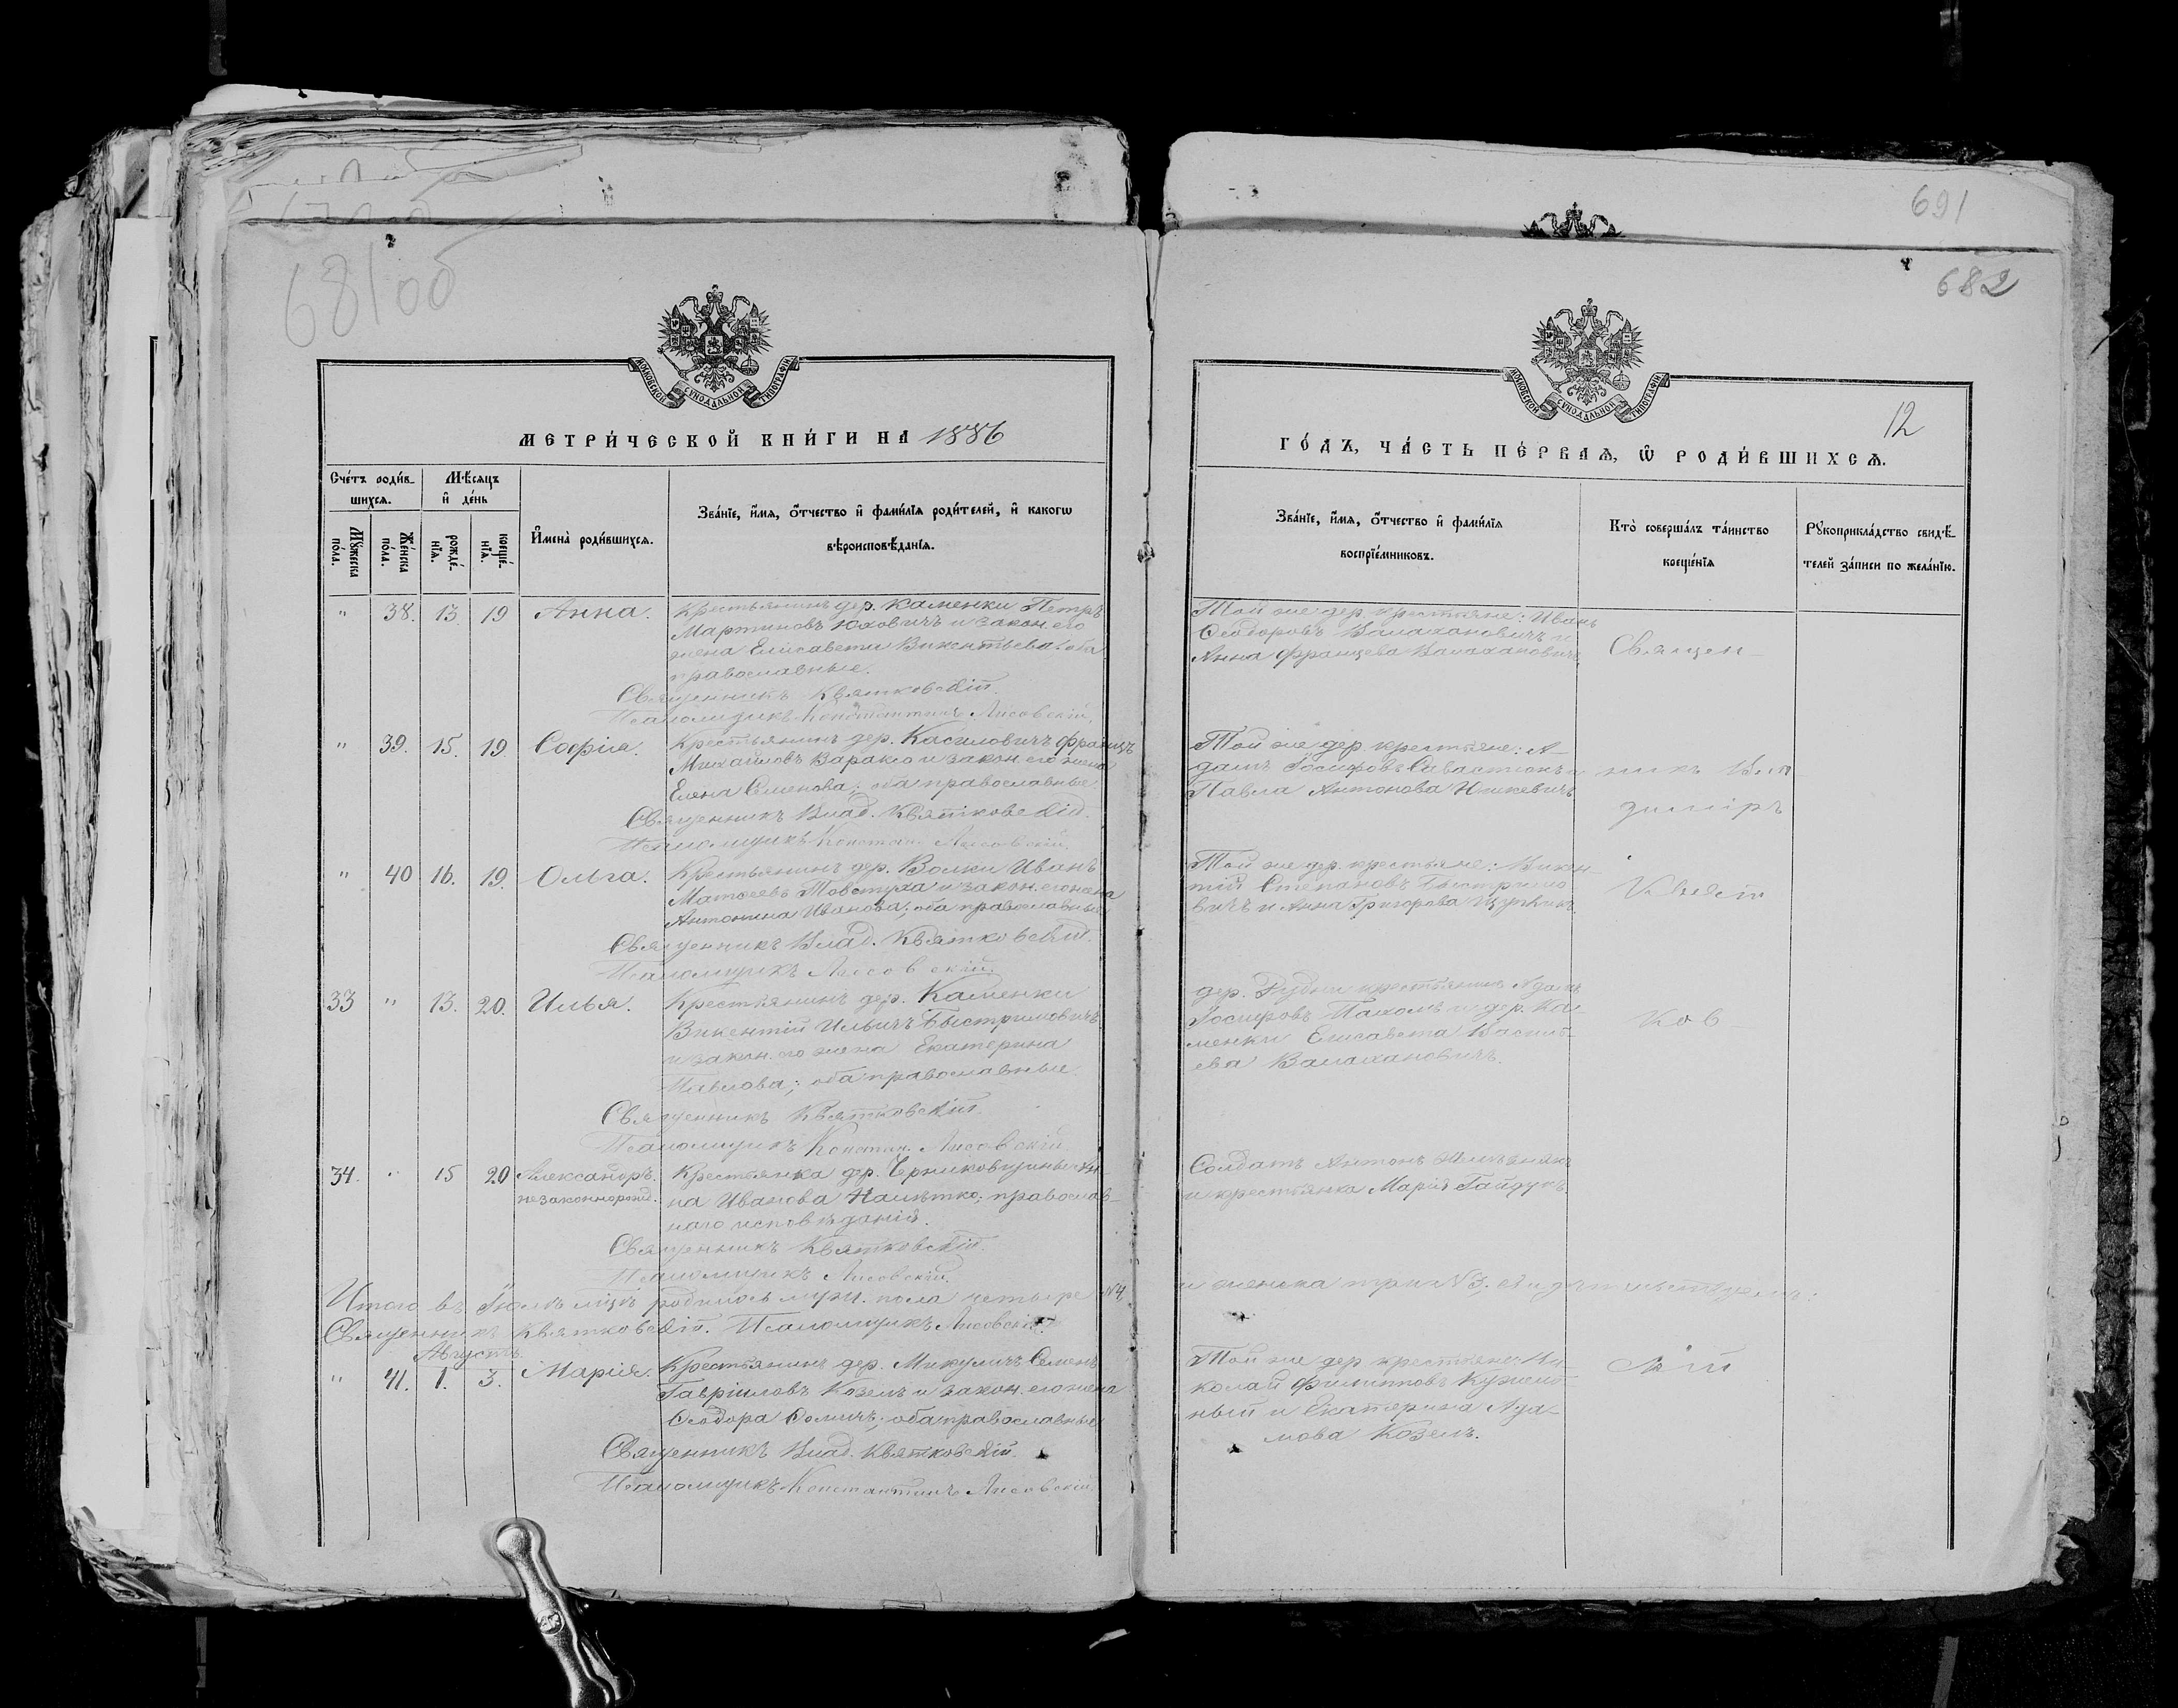 691
681 об
682
МОСКОВСКОЙ СУНОДАЛЬНОЙ ТИПОГРАФІИ
МОСКОВСКОЙ СУНОДАЛЬНОЙ ТИПОГРАФІИ
12
МЕТРИ́ЧЕСКОЙ КНИ́ГИ НА 1886
ГО́ДЪ, ЧА́СТЬ ПЕ́РВАѦ, Ѽ РОДИ́ВШИХСѦ.
Сче́тъ роди́в-
шихсѧ.
Мѣ́сѧцъ
и҆ де́нь
Мꙋ́жеска по́ла.
Же́нска по́ла.
рожде́-
нїѧ.
креще́-
нїѧ.
И҆мена̀ роди́вшихсѧ.
Зва́нїе, и҆́мѧ, ѻ҆́тчество и҆ фами́лїѧ роди́телей, и҆ какогѡ
вѣроисповѣ́данїѧ.
Зва́нїе, и҆́мѧ, ѻ҆́тчество и҆ фами́лїѧ
воспрїе́мниковъ.
Кто̀ соверша́лъ та́инство
креще́нїѧ
Рꙋкоприкла́дство свидѣ́-
телей за́писи по жела́нїю.
" 38. 13. 19 Анна.
Крестьянинъ дер. Каменки Петръ
Мартиновъ Юховичъ и закон. его
жена Елисавета Викентьева; оба
православные.
Священникъ Квятковскій.
Псаломщикъ Константинъ Лисовскій.
Той же дер. крестьяне: Иванъ
Ѳеодоровъ Валахановичъ и
Анна Францева Валахановичъ.
Священ-
" 39. 15. 19 Софія.
Крестьянинъ дер. Касиловичъ Францъ
Михайловъ Варакса и закон. его жена
Елена Семенова; оба православные.
Священникъ Влад. Квятковскій.
Псаломщикъ Констан. Лисовскій.
Той же дер. крестьяне: А-
дамъ Іосифовъ Савастюкъ и
Павла Антонова Юшкевичъ
никъ Вла-
диміръ
" 40 16. 19. Ольга.
Крестьянинъ дер. Волки Иванъ
Матѳеевъ Товстуха и закон. его жена
Антонина Иванова; оба православные.
Священникъ Влад. Квятковскій.
Псаломщикъ Лисовскій.
Той же дер. крестьяне: Викен-
тій Степановъ Быстримо-
вичъ и Анна Григорова
Квят-
33 " 13. 20. Илья.
Крестьянинъ дер. Каменки
Викентій Ильичъ Быстримовичъ
и закон. его жена Екатерина
Павлова; оба православные.
Священникъ Квятковскій.
Псаломщикъ Констан. Лисовскій
дер. Рудни крестьянинъ Адамъ
Іосифовъ Пахомъ и дер. Ка-
менки Елисавета Василь-
ева Валахановичъ.
ков
34. " 15 20 Александръ.
незаконнорожд.
Крестьянка дер. Черниковщины Ан-
на Иванова Налѣтко; православ-
наго исповѣданія.
Священникъ Квятковскій.
Псаломщикъ Лисовскій.
Солдатъ Антонъ
и крестьянка Марія Гайдукъ.
Итого въ Іюлѣ м-цѣ родилось муж. пола четыре №4,
и женска три №3.
Священникъ Квятковскій. Псаломщикъ Лисовскій.
Августъ.
" 41. 1. 3. Марія.
Крестьянинъ дер. Микуличъ Семенъ
Гавріиловъ Козелъ и закон. его жена
Ѳеодора Ѳомичъ; оба православные.
Священникъ Влад. Квятковскій.
Псаломщикъ Константинъ Лисовскій
Той же дер. крестьяне: Ни-
колай Филипповъ
ный и Екатерина Ада-
мова Козелъ.
скій